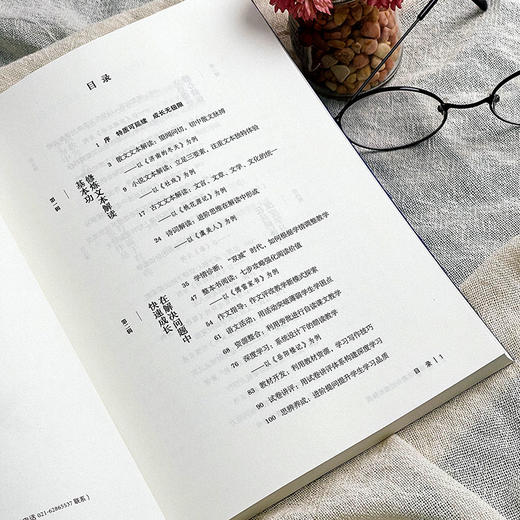 目录
1 序 特质可延续 成长无极限
第一辑
修炼文本解读基本功
3 散文文本解读：望闻问切，切中散文脉搏
——以《济南的冬天》为例
9 小说文本解读：立足三要素，注重文本独特体验
——以《社戏》为例
17 古文文本解读：文言、文章、文学、文化的统一
——以《桃花源记》为例
24 诗词解读：进阶思维在解读中形成
——以《虞美人》为例
第二辑
在解决问题中快速成长
35 学情诊断：“双减”时代，如何根据学情调整教学
47 整本书阅读：七步攻略强化阅读价值
——以《傅雷家书》为例
54 作文指导：作文评改教学新模式探索
61 语文活动：用活动突破薄弱学生学困点
68 资源整合：利用旁批进行自读课文教学
76 深度学习：系统设计下的朗读教学
——以《岳阳楼记》为例
83 教材开发：利用教材资源，学习写作技巧
90 试卷讲评：用试卷讲评体系构建深度学习
100 思辨养成：进阶提问提升学生学习品质
目录 1
电话 021-62865537 联系）